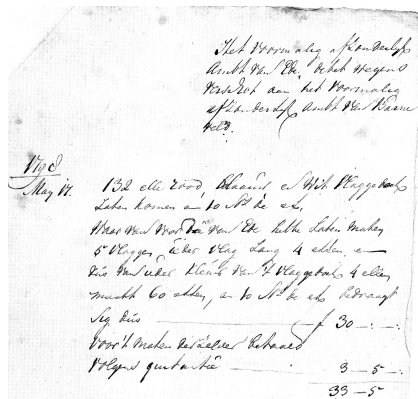 Het voormalig afzonderlyk
Ambt van Ede, debet wegens
verschot aan het voormalig
afzonderlyk Ambt van Barne
veld.
1798
May 17. 132 elle rood, blaauw en wit vlaggedoek
laten komen a 10 St de el,
Waar van voor van Ede hebbe laten maken
5 vlagge, ider vlag lang 4 elden, en
dus van ider kleur van 't vlaggedoek 4 ellen
maakt 60 elden, a 10 St de el bedraagt
Zeg dus f 30 - . - .
Voor 't maken derzelver betaald
volgens quitantie 3 - 5 -
33 - 5